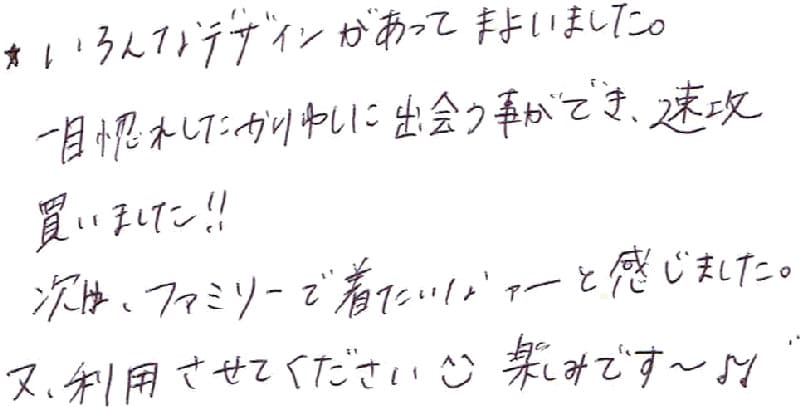 ★いろんなデザインがあってまよいました。
一目惚れしたかりゆしに出会う事ができ、速攻
買いました!!
次は、ファミリーで着たいなァーと感じました。
又、利用させてください☺ 楽しみです〜♪